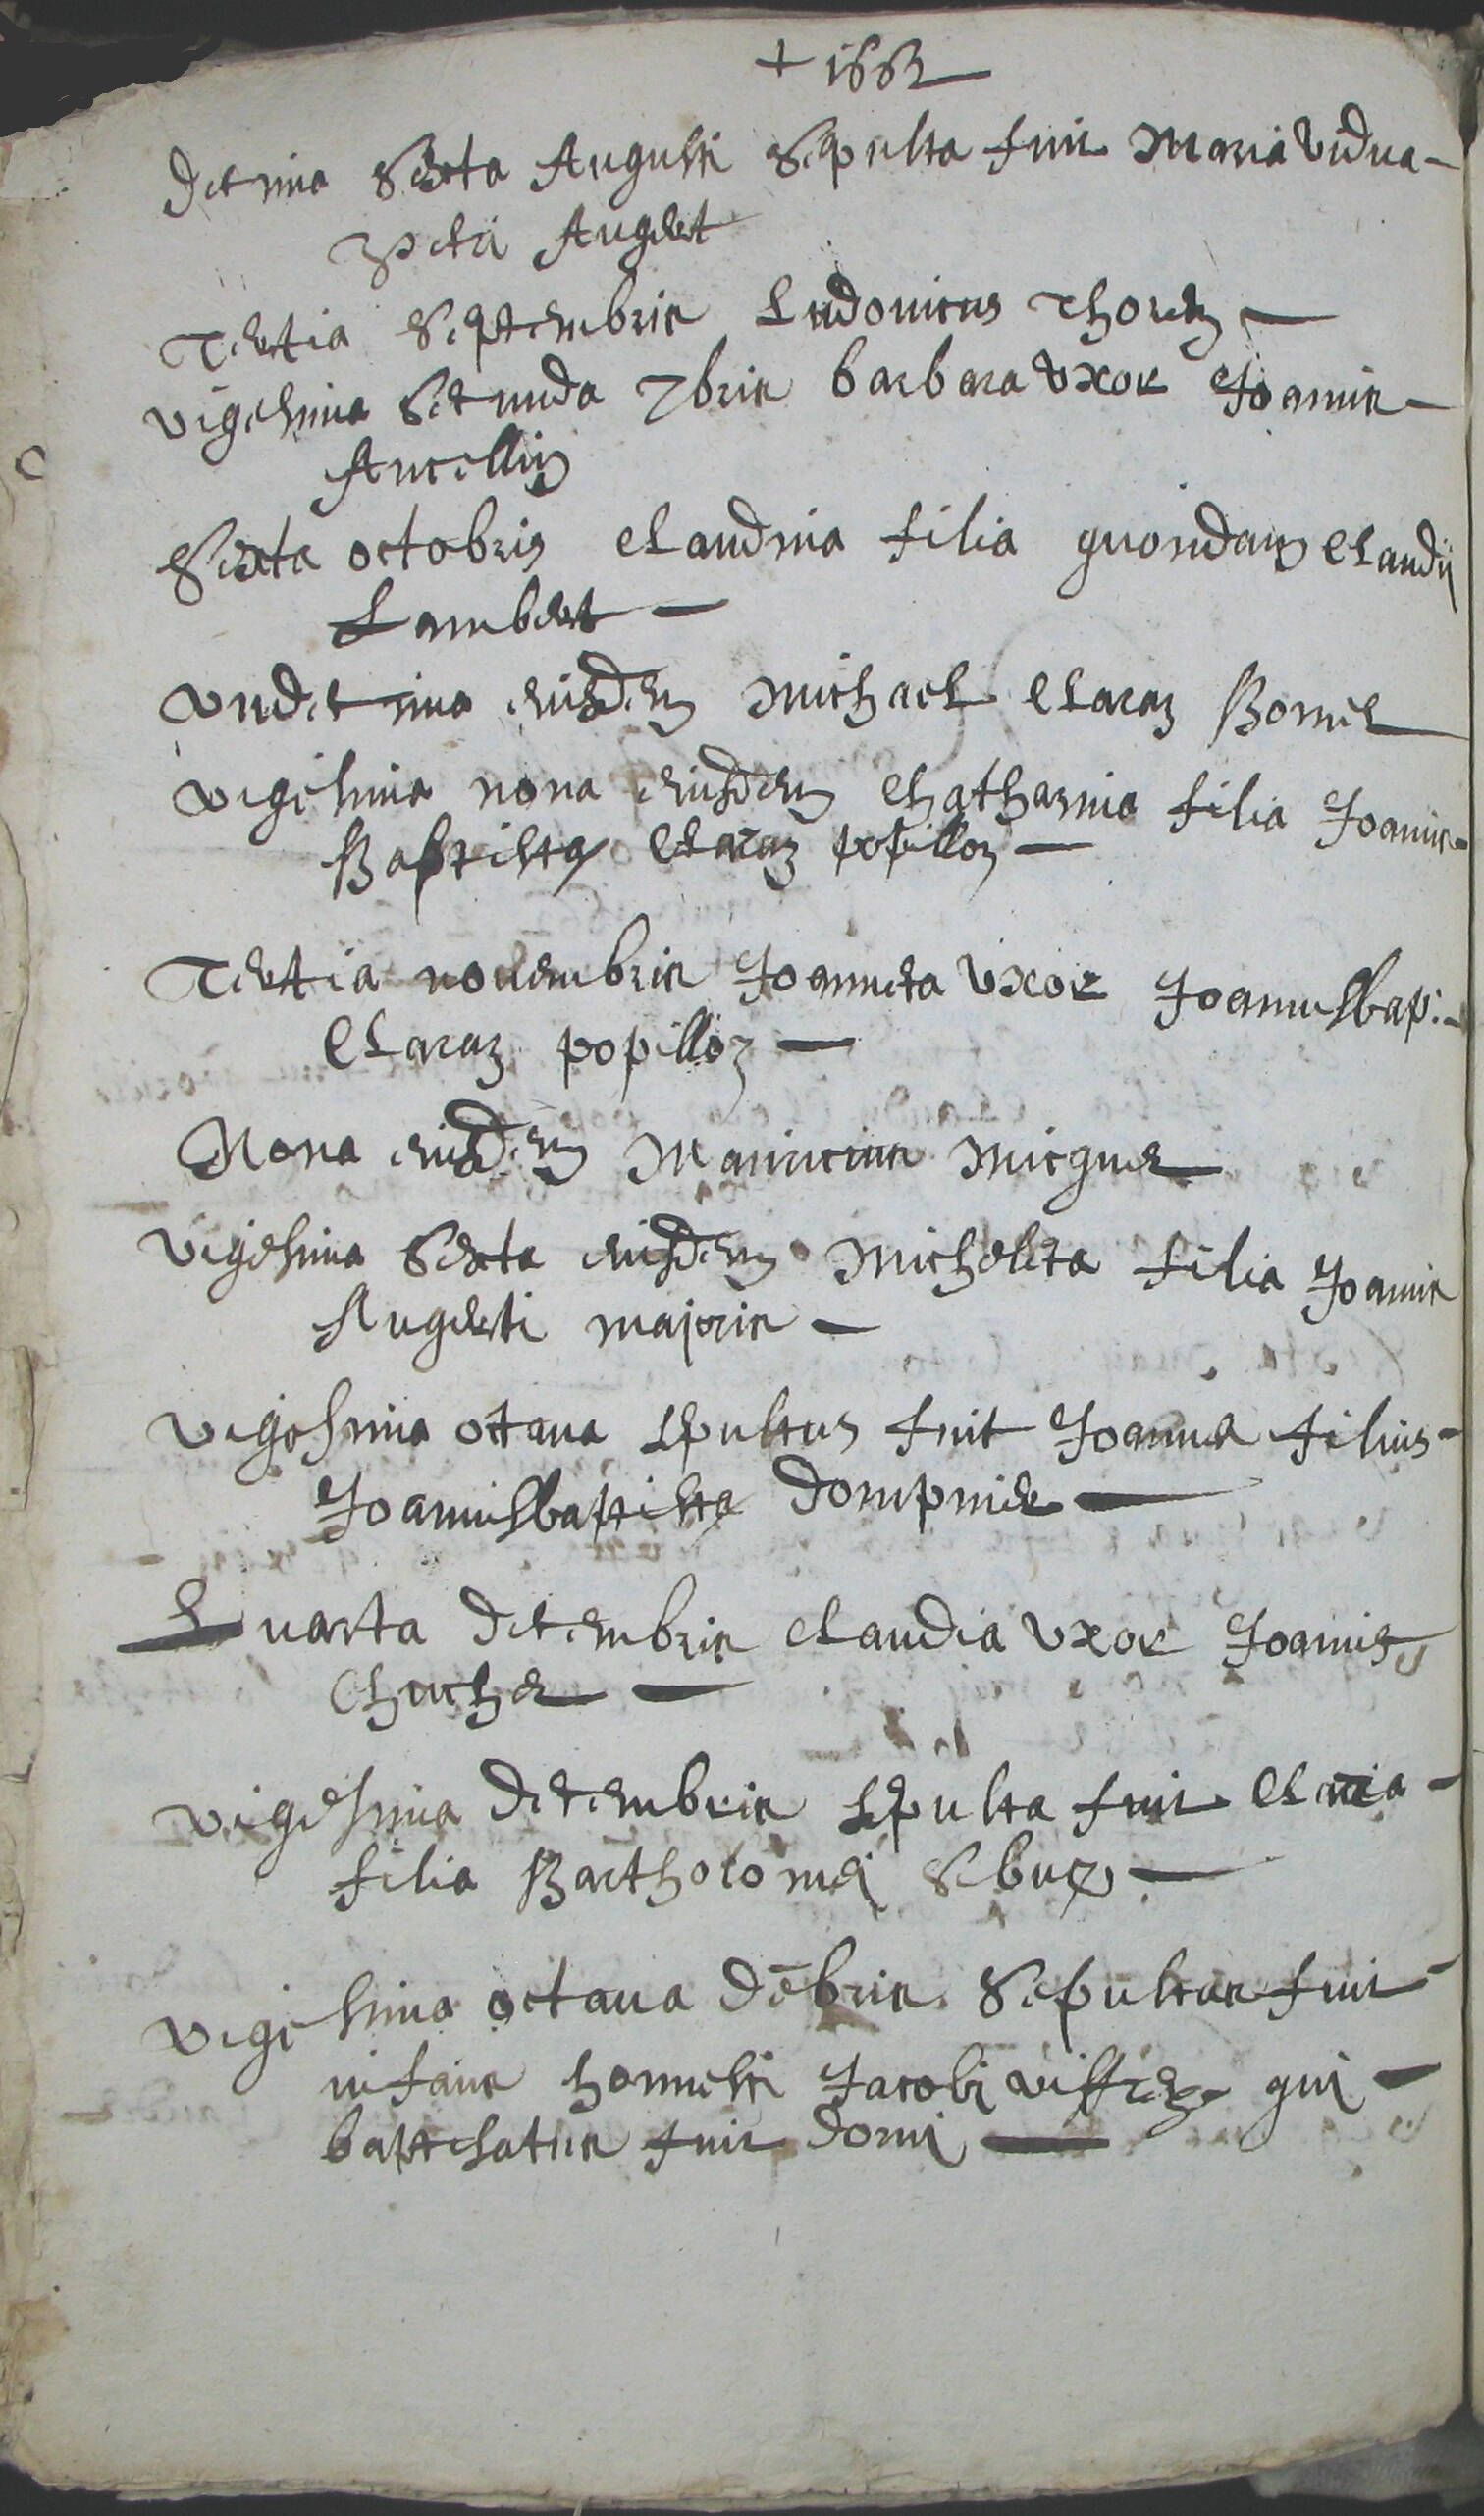 + 1662
decima sexta Augusti sepulta fuit Maria vidua
petri Augert
Tertia septembris Ludovicus Thorez
vigesima secunda 7bris barbara uxor Joannis
Ancellin
Sexta octobris claudina filia quondam claudii
Lambert
undecima eiusdem michael claraz Bornel
vigesima nona eiusdem chatharina filia Joannis
Baptistæ claraz popilloz
Tertia novembris Joanneta uxor Joannisbap:
claraz popilloz
Nona eiusdem Mauricius Micque
vigesima sexta eiusdem Micheleta filia Joannis
Augerti majoris
vigesima octava sepultus fuit Joannes filius
Joannisbaptistæ dompnier
Quarta decembris claudia uxor Joannis
Chuche
vigesima decembris sepulta fuit clauia
filia Bartholomei Sebuez
vigesima octava dēbris sepultus fuit
infans honnesti Jacobi viffrez qui
baptisatus fuit domi